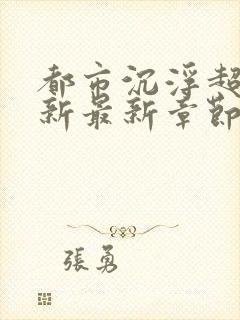 都市沉浮超
新最新章節
張勇